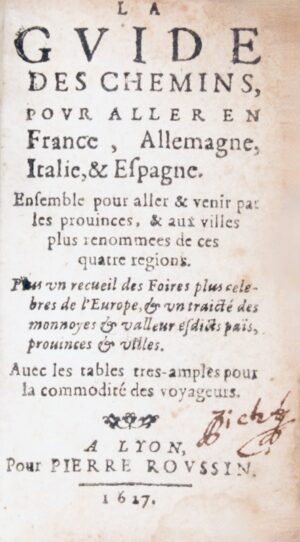 LA
GVIDE
DES CHEMINS,
POVR ALLER EN
France, Allemagne,
Italie, & Eſpagne.
Enſemble pour aller & venir par
les prouinces, & aux villes
plus renommees de ces
quatre regions.
Plus vn recueil des Foires plus cele-
bres de l'Europe, & vn traicté des
monnoyes & valleur eſdicts païs,
prouinces & villes.
Auec les tables tres-amples pour
la commodité des voyageurs.
A LYON,
Pour PIERRE ROVSSIN.
1617.